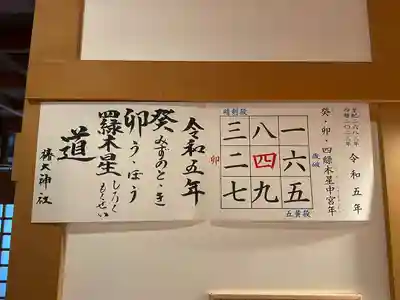 令和五年
皇紀二六八三年
西暦二〇二三年
癸・卯・四緑木星中宮年
暗剣殺
三八一
卯二四六歳破
七九五
五黄殺
令和五年
癸みずのと・き
卯う・ぼう
四緑木星しろくもくせい
道
椿大神社